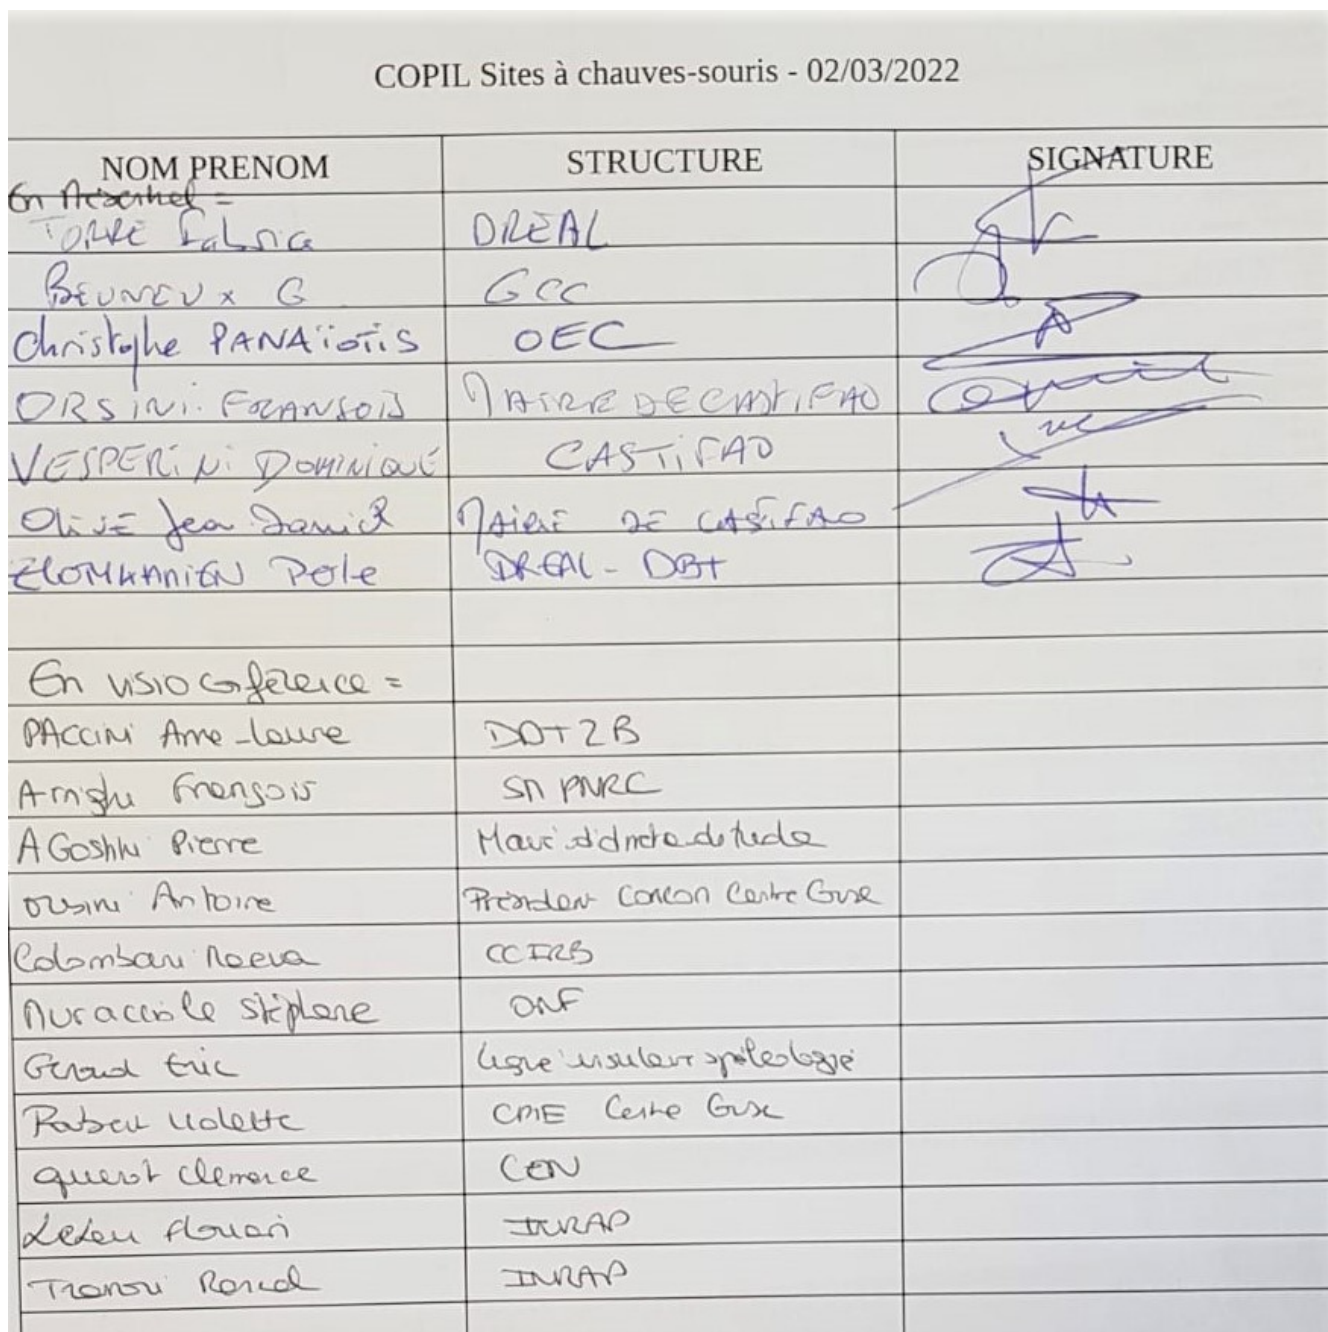 COPIL Sites à chauves-souris - 02/03/2022
NOM PRENOM STRUCTURE SIGNATURE
En Présentiel =
TORRE Fabrice DREAL
BEUNEUX G GCC
Christophe PANAÏOTIS OEC
ORSINI FRANSOIS MAIRE DE CASTIFAO
VESPERINI DOMINIQUE CASTIFAO
OLIVE Jean Daniel MAIRIE DE CASTIFAO
Pole DREAL - DBT
En visioconférence =
PACCINI Anne-Laure DDT2B
Arrighi François SM PNRC
AGostini Pierre
orsini Antoine Président Comcom Centre Corse
Colombani CCI2B
Muracciole Stéphane ONF
Geroud Eric Ligue insulaire spéléologie
Violette CPIE Centre Corse
Clemence CEN
Leleu INRAP
INRAP